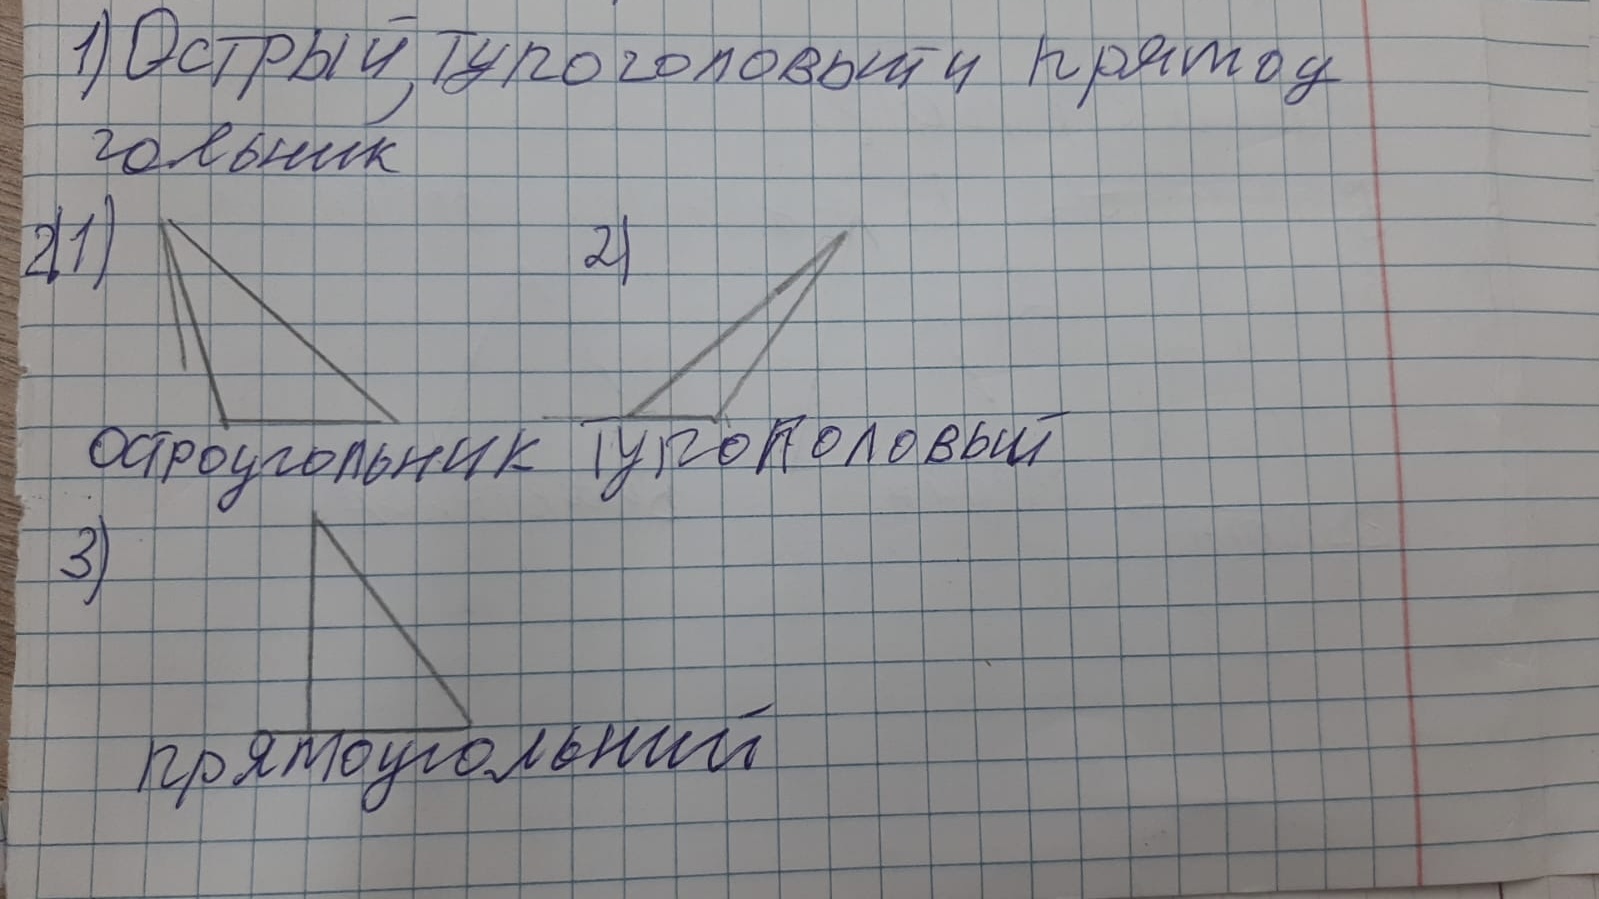 1) Острый, тупоголовый и прямоу
гольник
2) 1)
2)
остроугольник тупоголовый
3)
прямоугольний